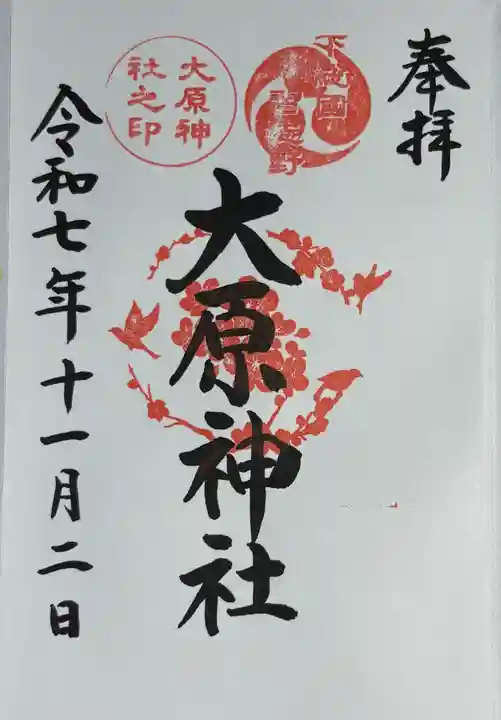 奉拝
下総國
習志野
大原神社之印
大原神社
令和七年十一月二日